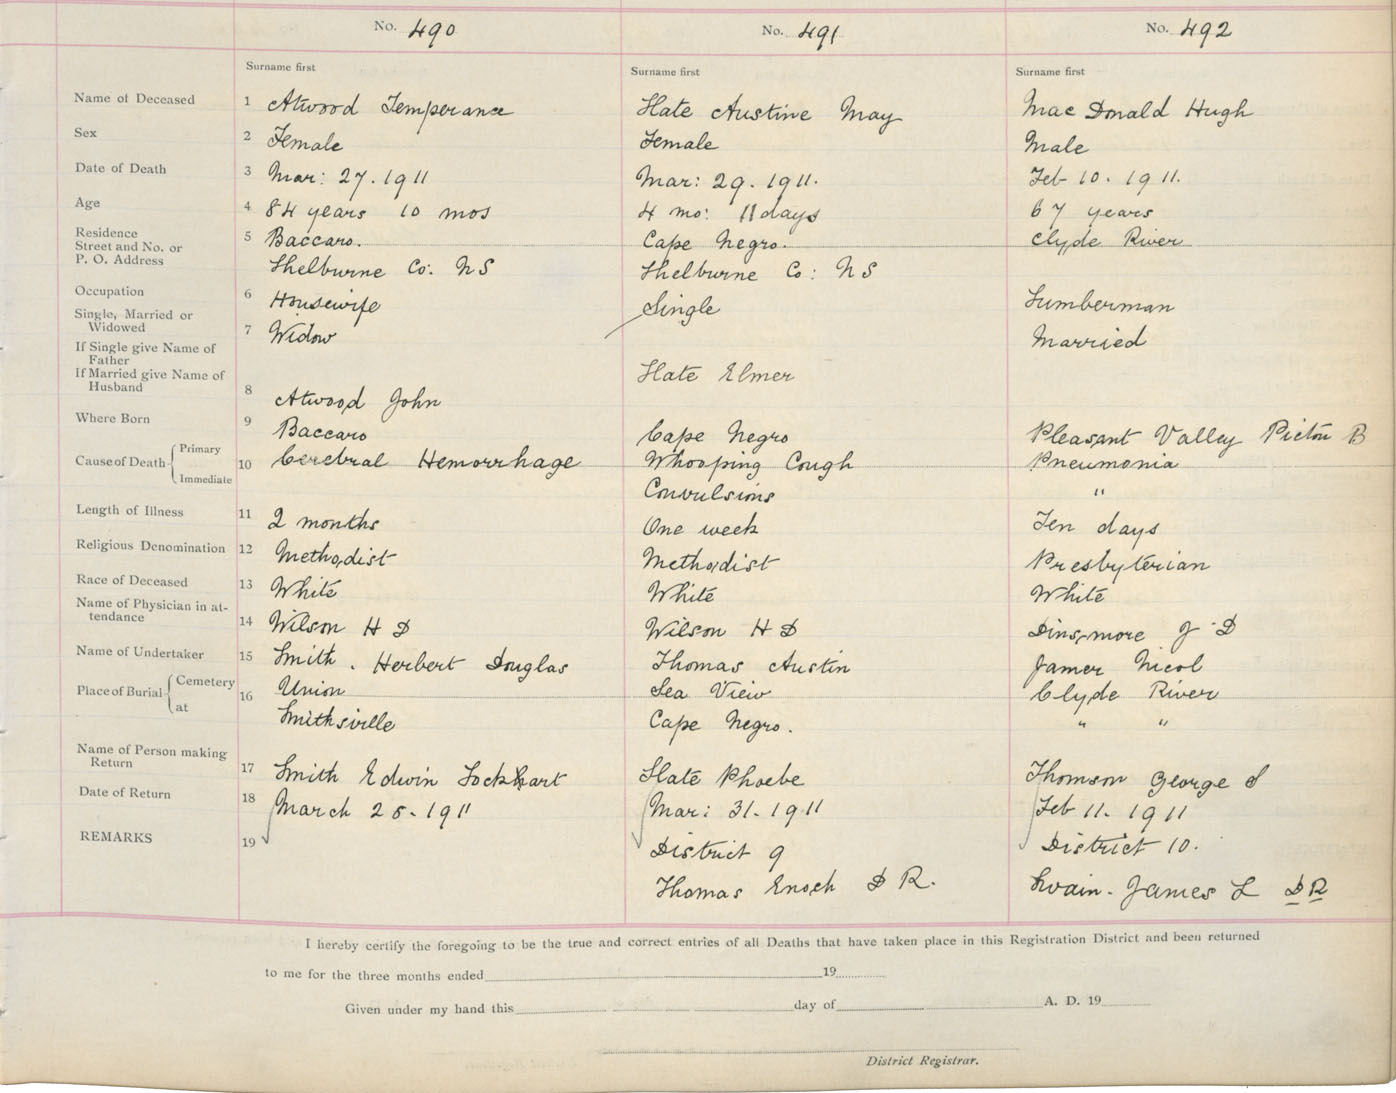 No. 490 No. 491 No. 492
Surname first Surname first Surname first
Name of Deceased 1 Atwood Temperance Slate Austine May Mac Donald Hugh
Sex 2 Female Female Male
Date of Death 3 Mar: 27. 1911 Mar: 29. 1911. Feb 10. 1911.
Age 4 84 years 10 mos 4 mo: 11 days 67 years
Residence
Street and No. or 5 Baccaro. Cape Negro. Clyde River
P. O. Address
Shelburne Co: NS Shelburne Co: NS
Occupation 6 Housewife Single Lumberman
Single, Married or
Widowed 7 Widow Married
If Single give Name of
Father
If Married give Name of Slate Elmer
Husband 8 Atwood John
Where Born 9 Baccaro Cape Negro Pleasant Valley Pictou B
Cause of Death Primary 10 Cerebral Hemorrhage Whooping Cough Pneumonia
Immediate Convulsions "
Length of Illness 11 2 months One week Ten days
Religious Denomination 12 Methodist Methodist Presbyterian
Race of Deceased 13 White White White
Name of Physician in at-
tendance 14 Wilson H D Wilson H D Dinsmore J D
Name of Undertaker 15 Smith. Herbert Douglas Thomas Austin James Nicol
Place of Burial Cemetery 16 Union Sea View Clyde River
at Smithsville Cape Negro. " "
Name of Person making
Return 17 Smith Edwin Lockhart Slate Phoebe Thomson George S
Date of Return 18 March 28. 1911 Mar: 31. 1911 Feb 11. 1911
REMARKS 19 District 9 District 10.
Thomas Enoch D R. Swain. James L D R
I hereby certify the foregoing to be the true and correct entries of all Deaths that have taken place in this Registration District and been returned
to me for the three months ended 19
Given under my hand this day of A. D. 19
District Registrar.